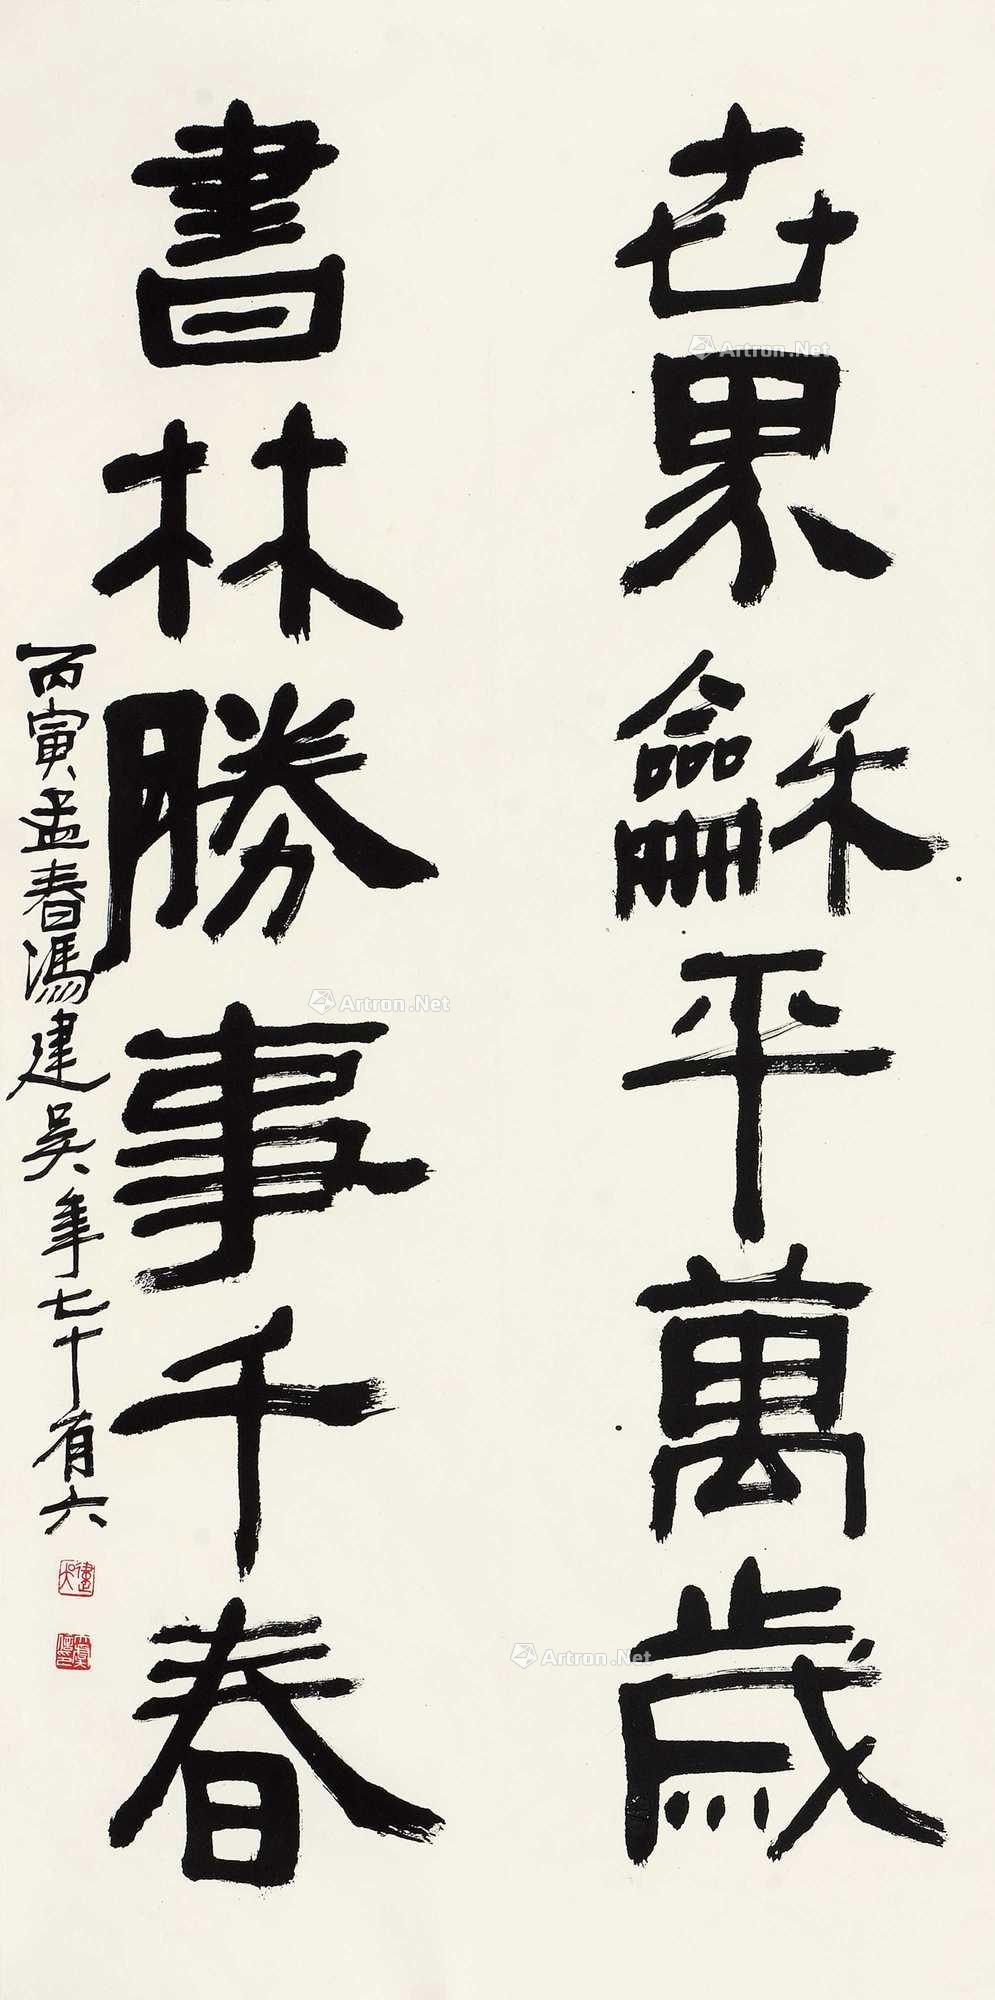 世界龢平萬歲
書林勝事千春
丙寅孟春馮建吴年七十有六
Artron.Net
Artron.Net
Artron.Net